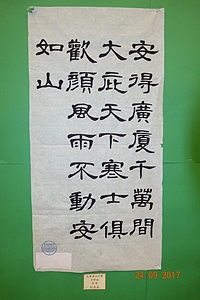 安得廣廈千萬間
大庇天下寒士俱
歡顔風雨不動安
如山
24 09 2017